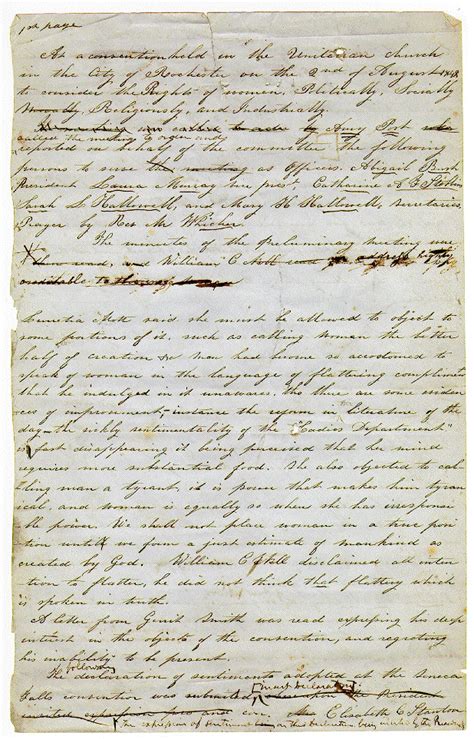 1st page
At a convention held in the Unitarian church
in the City of Rochester on the 2nd of August 1848
to consider the Rights of women Politically, Socially
Morally, Religiously and Industrially
by Amy Post
called the meeting to order and
reported on the part of the committee the following
persons to serve the meeting as Officers. Abigail Bush
President Laura Murray vice prest. Catharine A F Stebbins
Sarah L Hallowell, and Mary H Hallowell, secretaries,
Prayer by Rev Mr Whicher
The minutes of the preliminary meeting was
then read, and William C Nell
Lucretia Mott said she must be allowed to object to
some portions of it, such as calling woman the better
half of creation &c man had become so accustomed to
speak of woman in the language of flattering compliments
that he indulged in it unawares, tho there are some evid
ences of improvement, instance the reform in literature of the
day the sickly sentimentality of the "Ladies Department"
is fast disappearing it being perceived that her mind
requires more substantial food. She also objected to cal
ling man a tyrant, it is power that makes him tyran
ical, and woman is equally so when she has irresponsi
ble power. We shall not place woman in a true posi
tion until we form a just estimate of mankind as
created by God. William C Nell disclaimed all inten
tion to flatter, he did not think that flattery which
is spoken in truth.
A letter from Gerrit Smith was read expressing his deep
interest in the objects of the convention, and regretting
his inability to be present.
following
The declaration of sentiments adopted at the Seneca
Falls convention was
invited expression pro and con. Mrs Elisabeth C Stanton